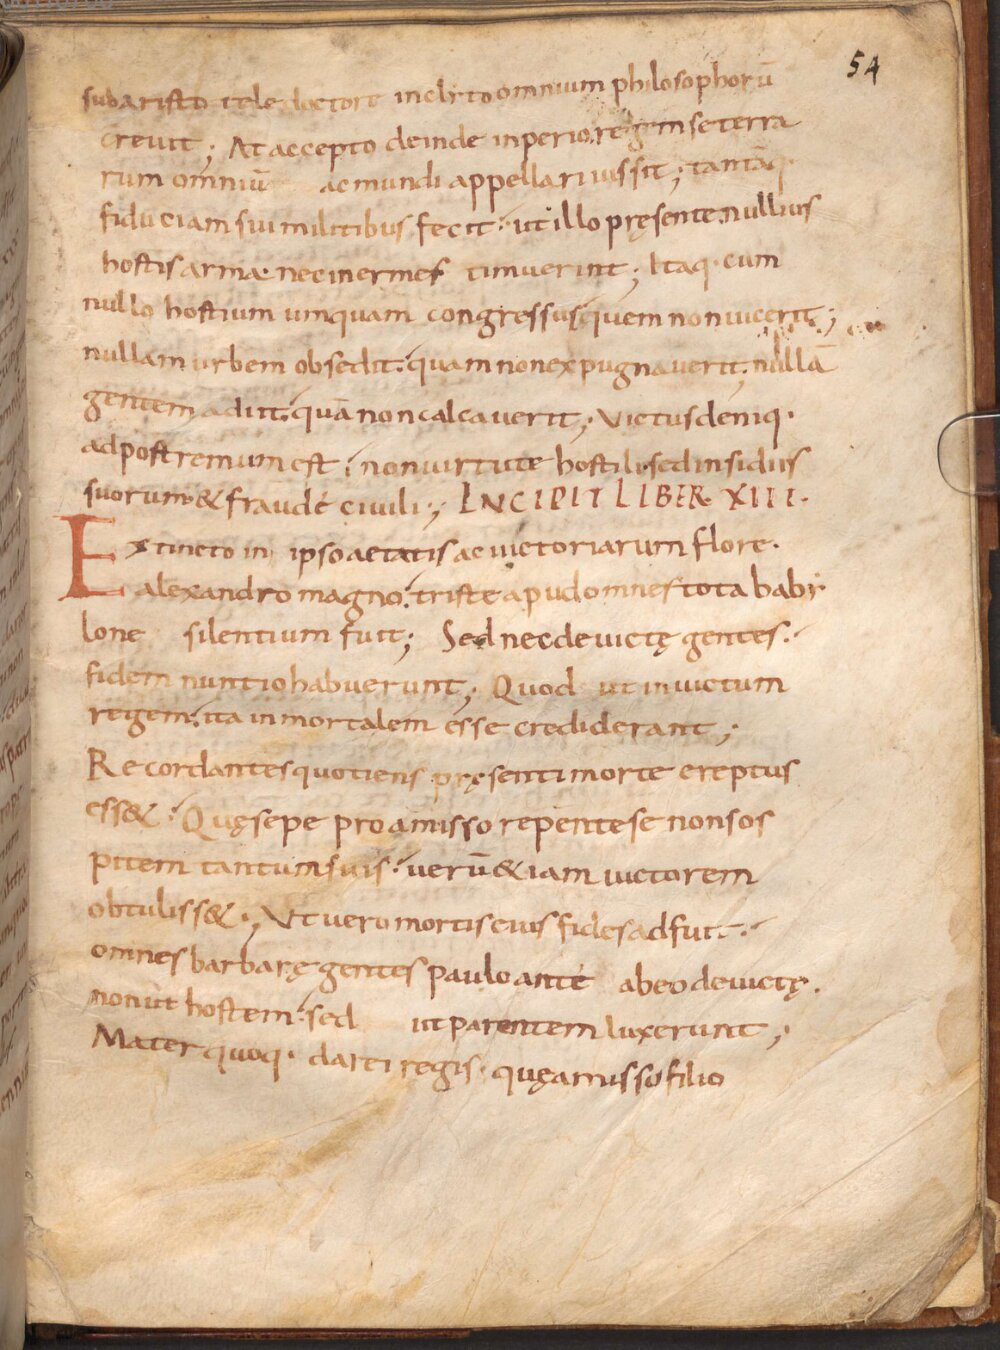 54
sub aristotele doctore inclito omnium philosophorū
crevit; At accepto deinde inperio, regem se terra
rum omniū ac mundi appellari iussit; tantāq·
fiduciam sui militibus fecit· ut illo pręsente nullius
hostis arma nec inermes timuerint; Itaq· cum
nullo hostium umquam congressus quem non vicerit;
nullam urbem obsedit· quam non expugnaverit, nullā
gentem adiit· quā non calcaverit; Victus deniq·
ad postremum est· non virtute hostili· sed insidiis
suorum· & fraude civili; INCIPIT LIBER· XIII·
Extincto in ipso aetatis ac victoriarum flore·
alexandro magno· triste apud omnes tota baby
lone silentium fuit; Sed nec devictę gentes·
fidem nuntio habuerunt; Quod ut invictum
regem· ita inmortalem esse crediderant;
Recordantes quotiens pręsenti morte ereptus
ess&· Quę sepe pro amisso repente se non sos
pitem tantum suis· verū & iam victorem
obtuliss&; Ut vero mortis eius fides adfuit·
omnes barbarę gentes paulo ante ab eo devictę·
non ut hostem· sed ut parentem luxerunt;
Mater quoq· darei regis· quę amisso filio